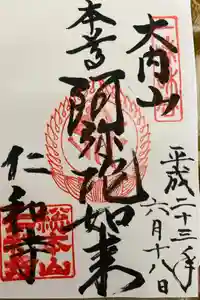 大内山
本尊
阿弥陀如来
仁和寺
平成二十三年
六月十八日